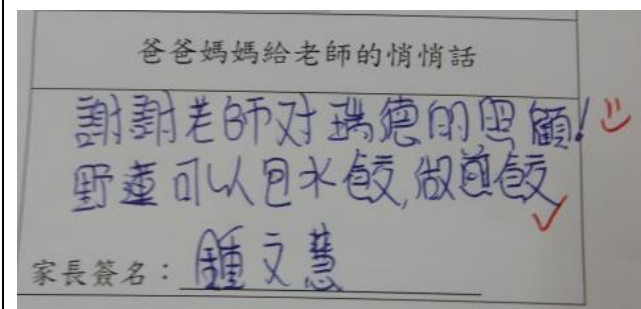 爸爸媽媽給老師的悄悄話
謝謝老師対瑞德的照顧!
野蓮可以包水餃,做煎餃
家長簽名：鍾文慧